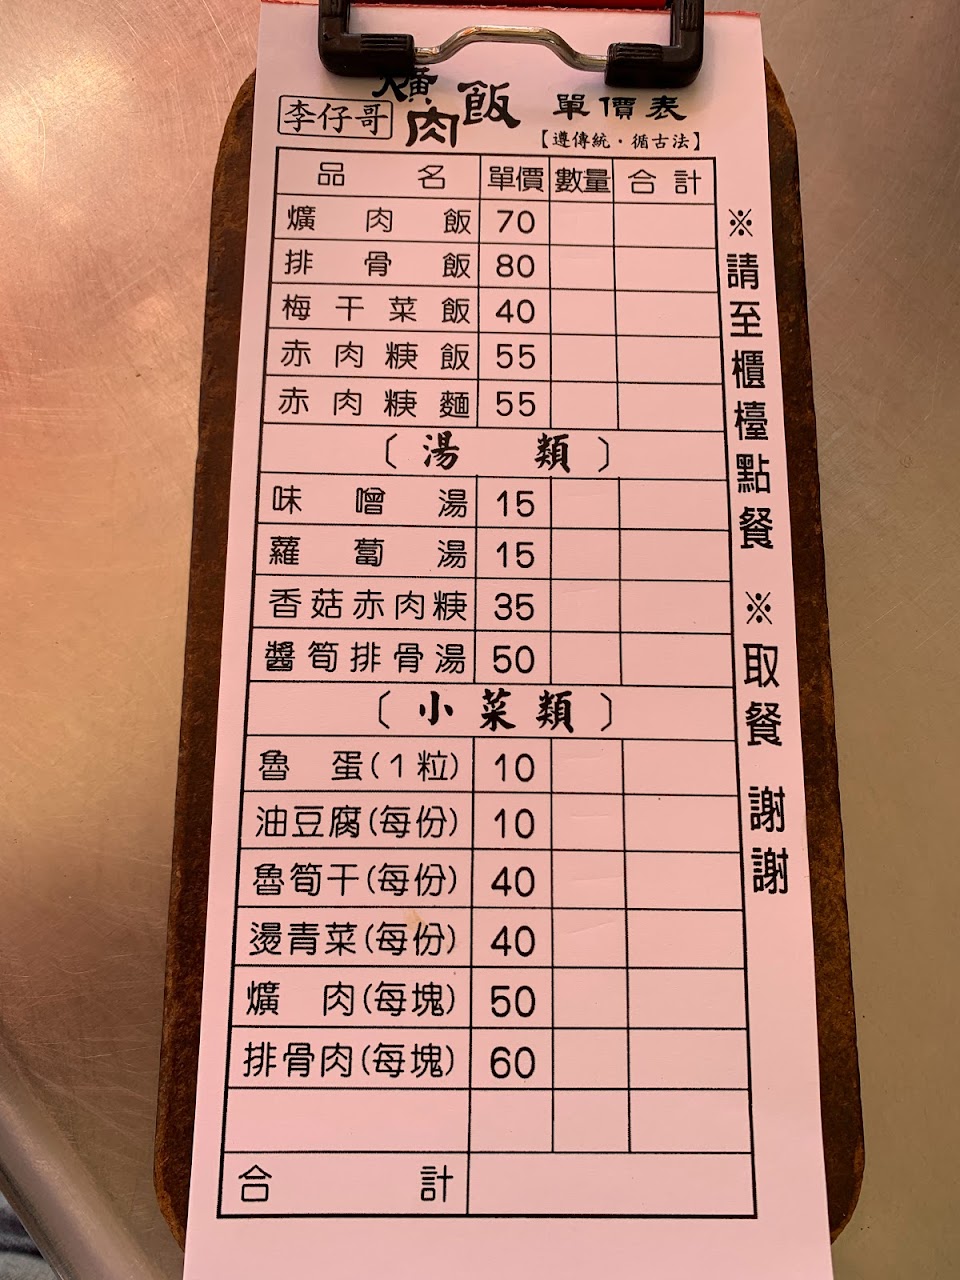 李仔哥 爌肉飯 單價表
【遵傳統．循古法】
品名 單價 數量 合計
爌肉飯 70
排骨飯 80
梅干菜飯 40
赤肉焿飯 55
赤肉焿麵 55
〔湯類〕
味噌湯 15
蘿蔔湯 15
香菇赤肉焿 35
醬筍排骨湯 50
〔小菜類〕
魯蛋(1粒) 10
油豆腐(每份) 10
魯筍干(每份) 40
燙青菜(每份) 40
爌肉(每塊) 50
排骨肉(每塊) 60
合計
※請至櫃檯點餐 ※取餐 謝謝